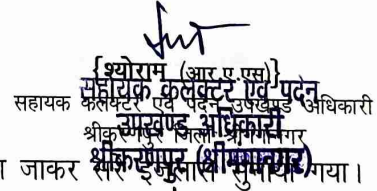 {श्योराम (आर.ए.एस)}
सहायक कलेक्टर एवं पदेन
सहायक कलेक्टर एवं पदेन उपखण्ड अधिकारी
उपखण्ड अधिकारी
श्रीकरणपुर जिला श्रीगंगानगर
श्रीकरणपुर (श्रीगंगानगर)
जाकर सरे इजलास सुनाया गया।